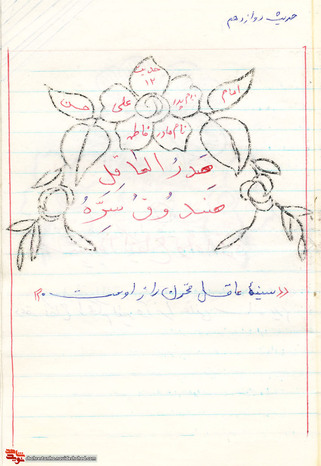 حدیث دوازدهم
حدیث
۱۲
امام
نام پدر
علی
حسن
نام مادر
فاطمه
صَدرُ العاقِلِ
صندوُقُ سِرِّهُ
((سینهٔ عاقل مخزن راز اوست.))